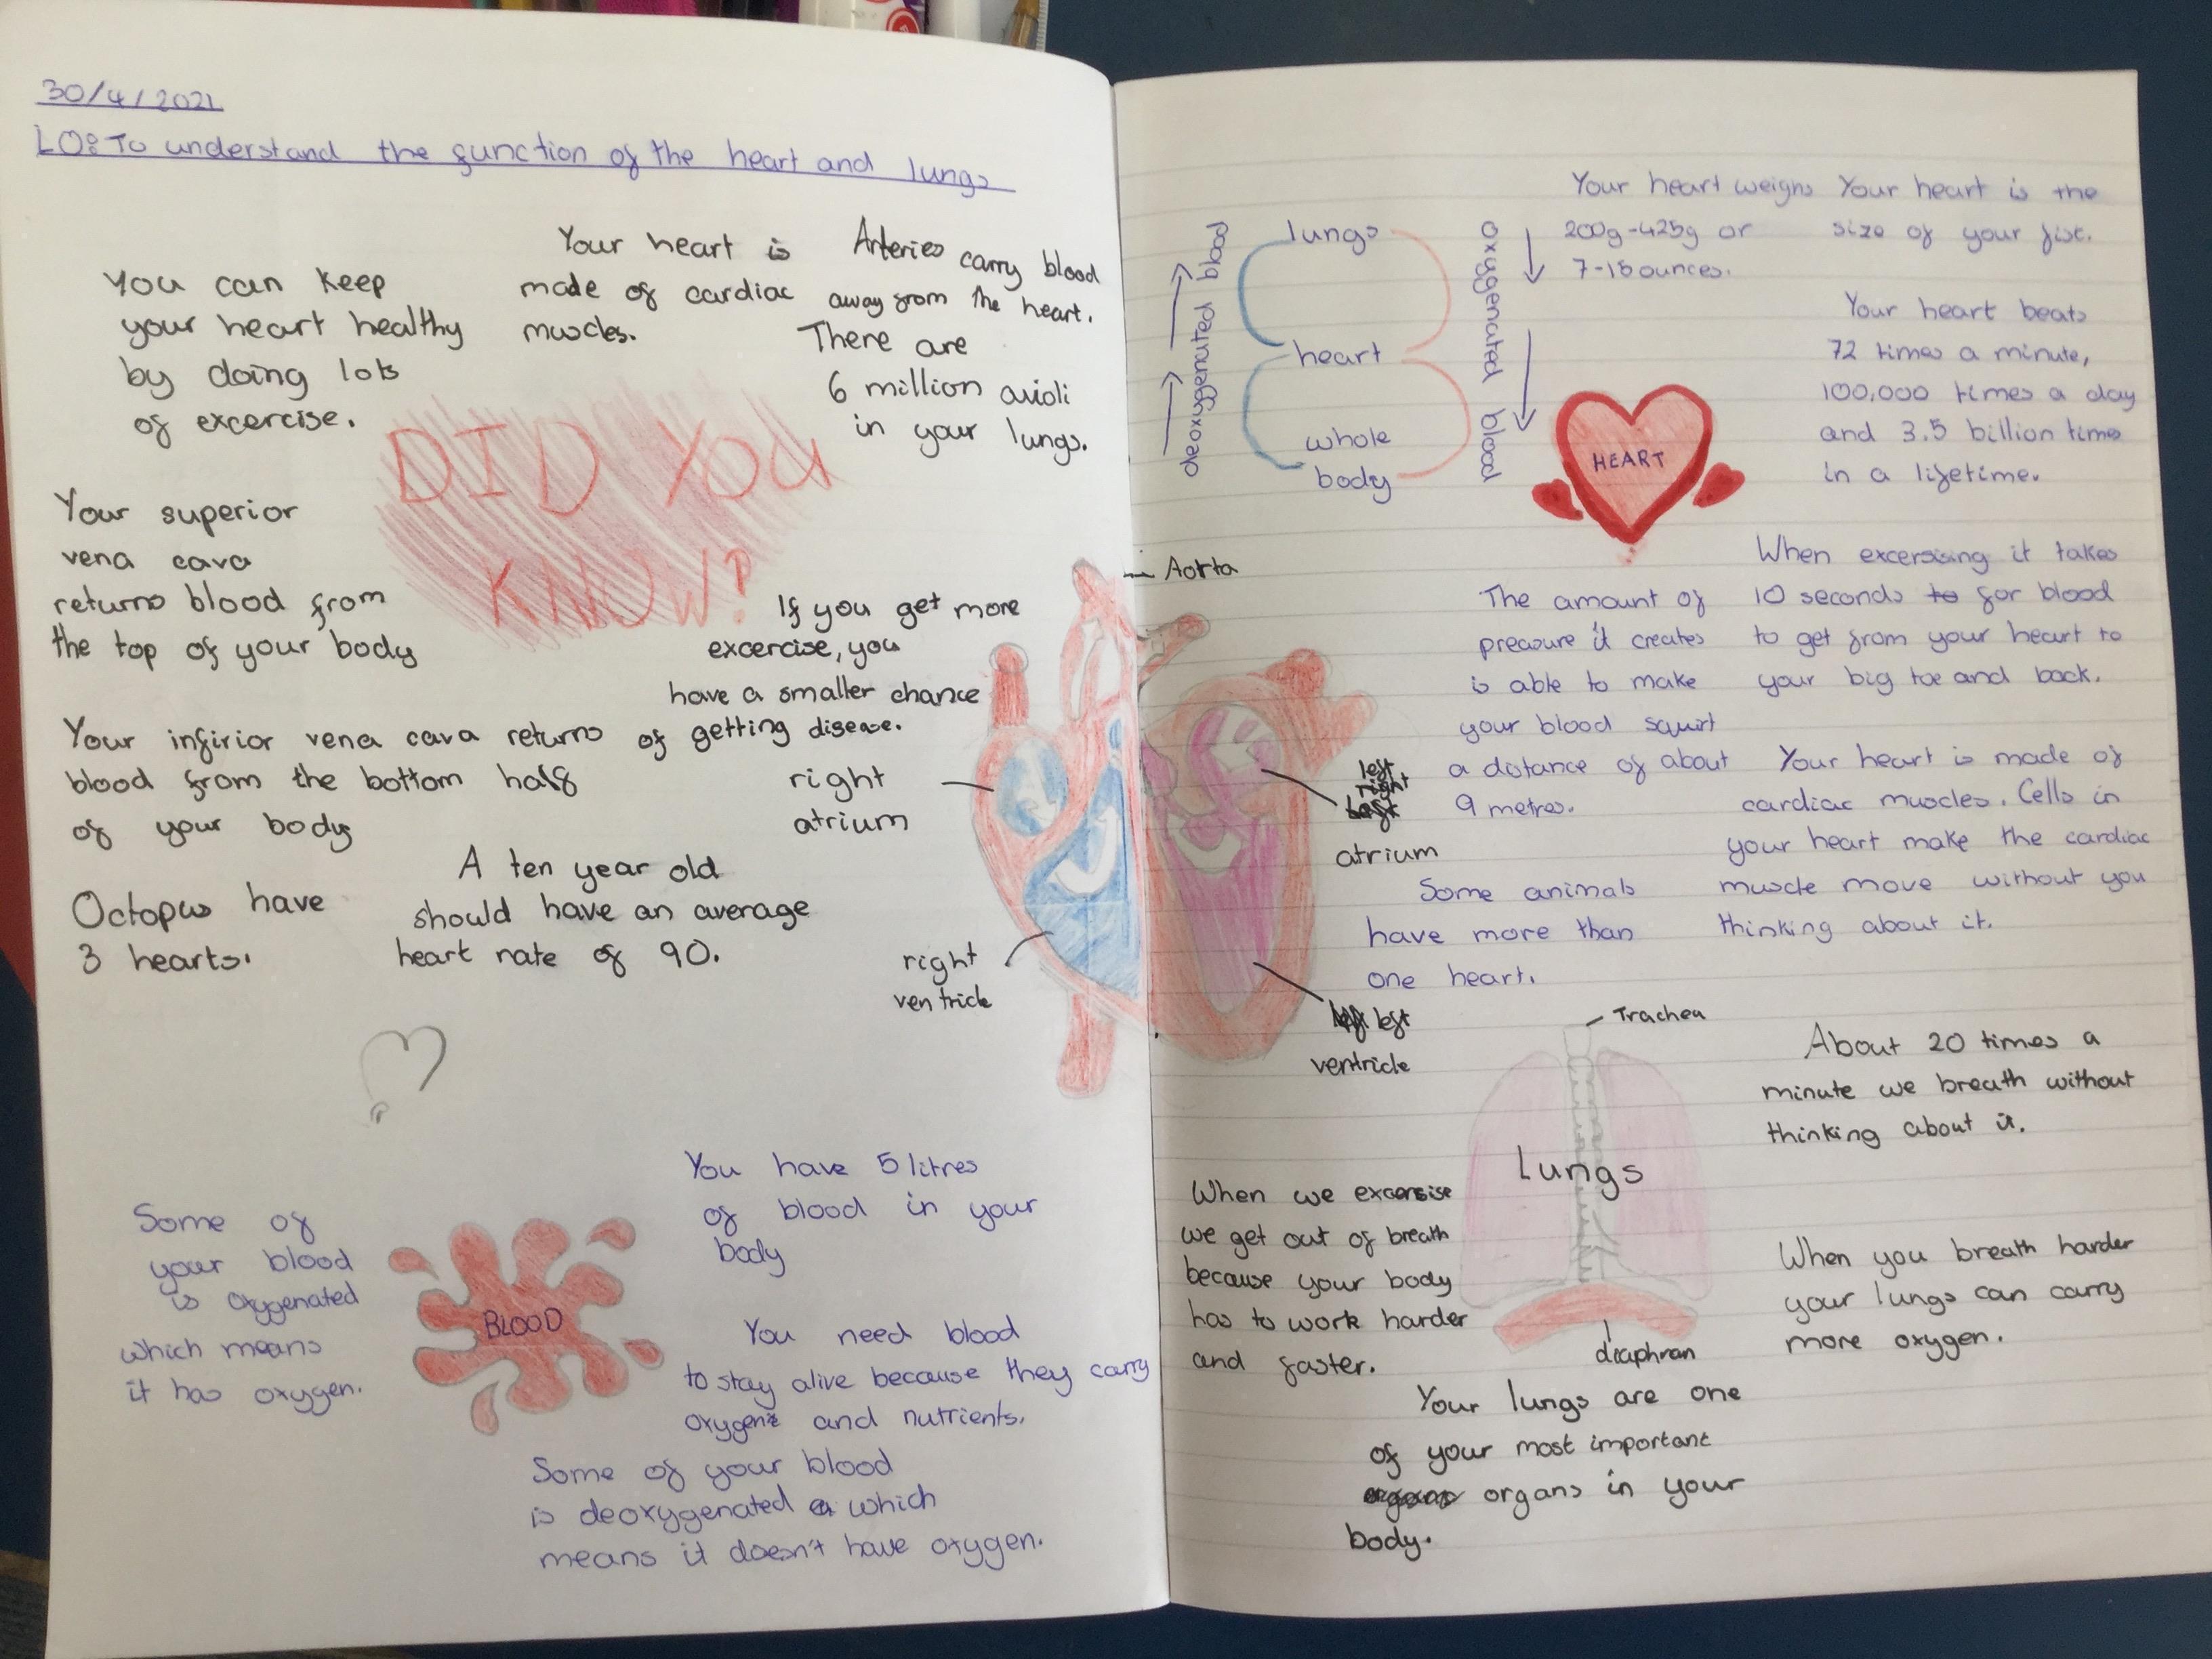 30/4/2021
LO: To understand the function of the heart and lungs
You can keep
your heart healthy
by doing lots
of excercise.
Your heart is
made of cardiac
muscles.
Arteries carry blood
away from the heart.
There are
6 million avioli
in your lungs.
DID YOU
KNOW?
Your superior
vena cava
returns blood from
the top of your body
If you get more
excercise, you
have a smaller chance
of getting disease.
Your infirior vena cava returns
blood from the bottom half
of your body
right
atrium
A ten year old
should have an average
heart rate of 90.
Octopus have
3 hearts.
right
ventricle
You have 5 litres
of blood in your
body
Some of
your blood
is oxygenated
which means
it has oxygen.
BLOOD
You need blood
to stay alive because they carry
oxygen and nutrients.
Some of your blood
is deoxygenated which
means it doesn't have oxygen.
deoxygenated blood
lungs
heart
whole
body
oxygenated blood
Your heart weighs
200g-425g or
7-15 ounces.
Your heart is the
size of your fist.
Your heart beats
72 times a minute,
100,000 times a day
and 3.5 billion time
in a lifetime.
HEART
Aorta
The amount of
preasure it creates
is able to make
your blood squirt
a distance of about
9 metres.
When excersising it takes
10 seconds to for blood
to get from your heart to
your big toe and back.
left
right
atrium
Your heart is made of
cardiac muscles. Cells in
your heart make the cardiac
muscle move without you
thinking about it.
Some animals
have more than
one heart.
left
ventricle
Trachea
Lungs
diaphran
About 20 times a
minute we breath without
thinking about it.
When we excersise
we get out of breath
because your body
has to work harder
and faster.
When you breath harder
your lungs can carry
more oxygen.
Your lungs are one
of your most important
organs in your
body.